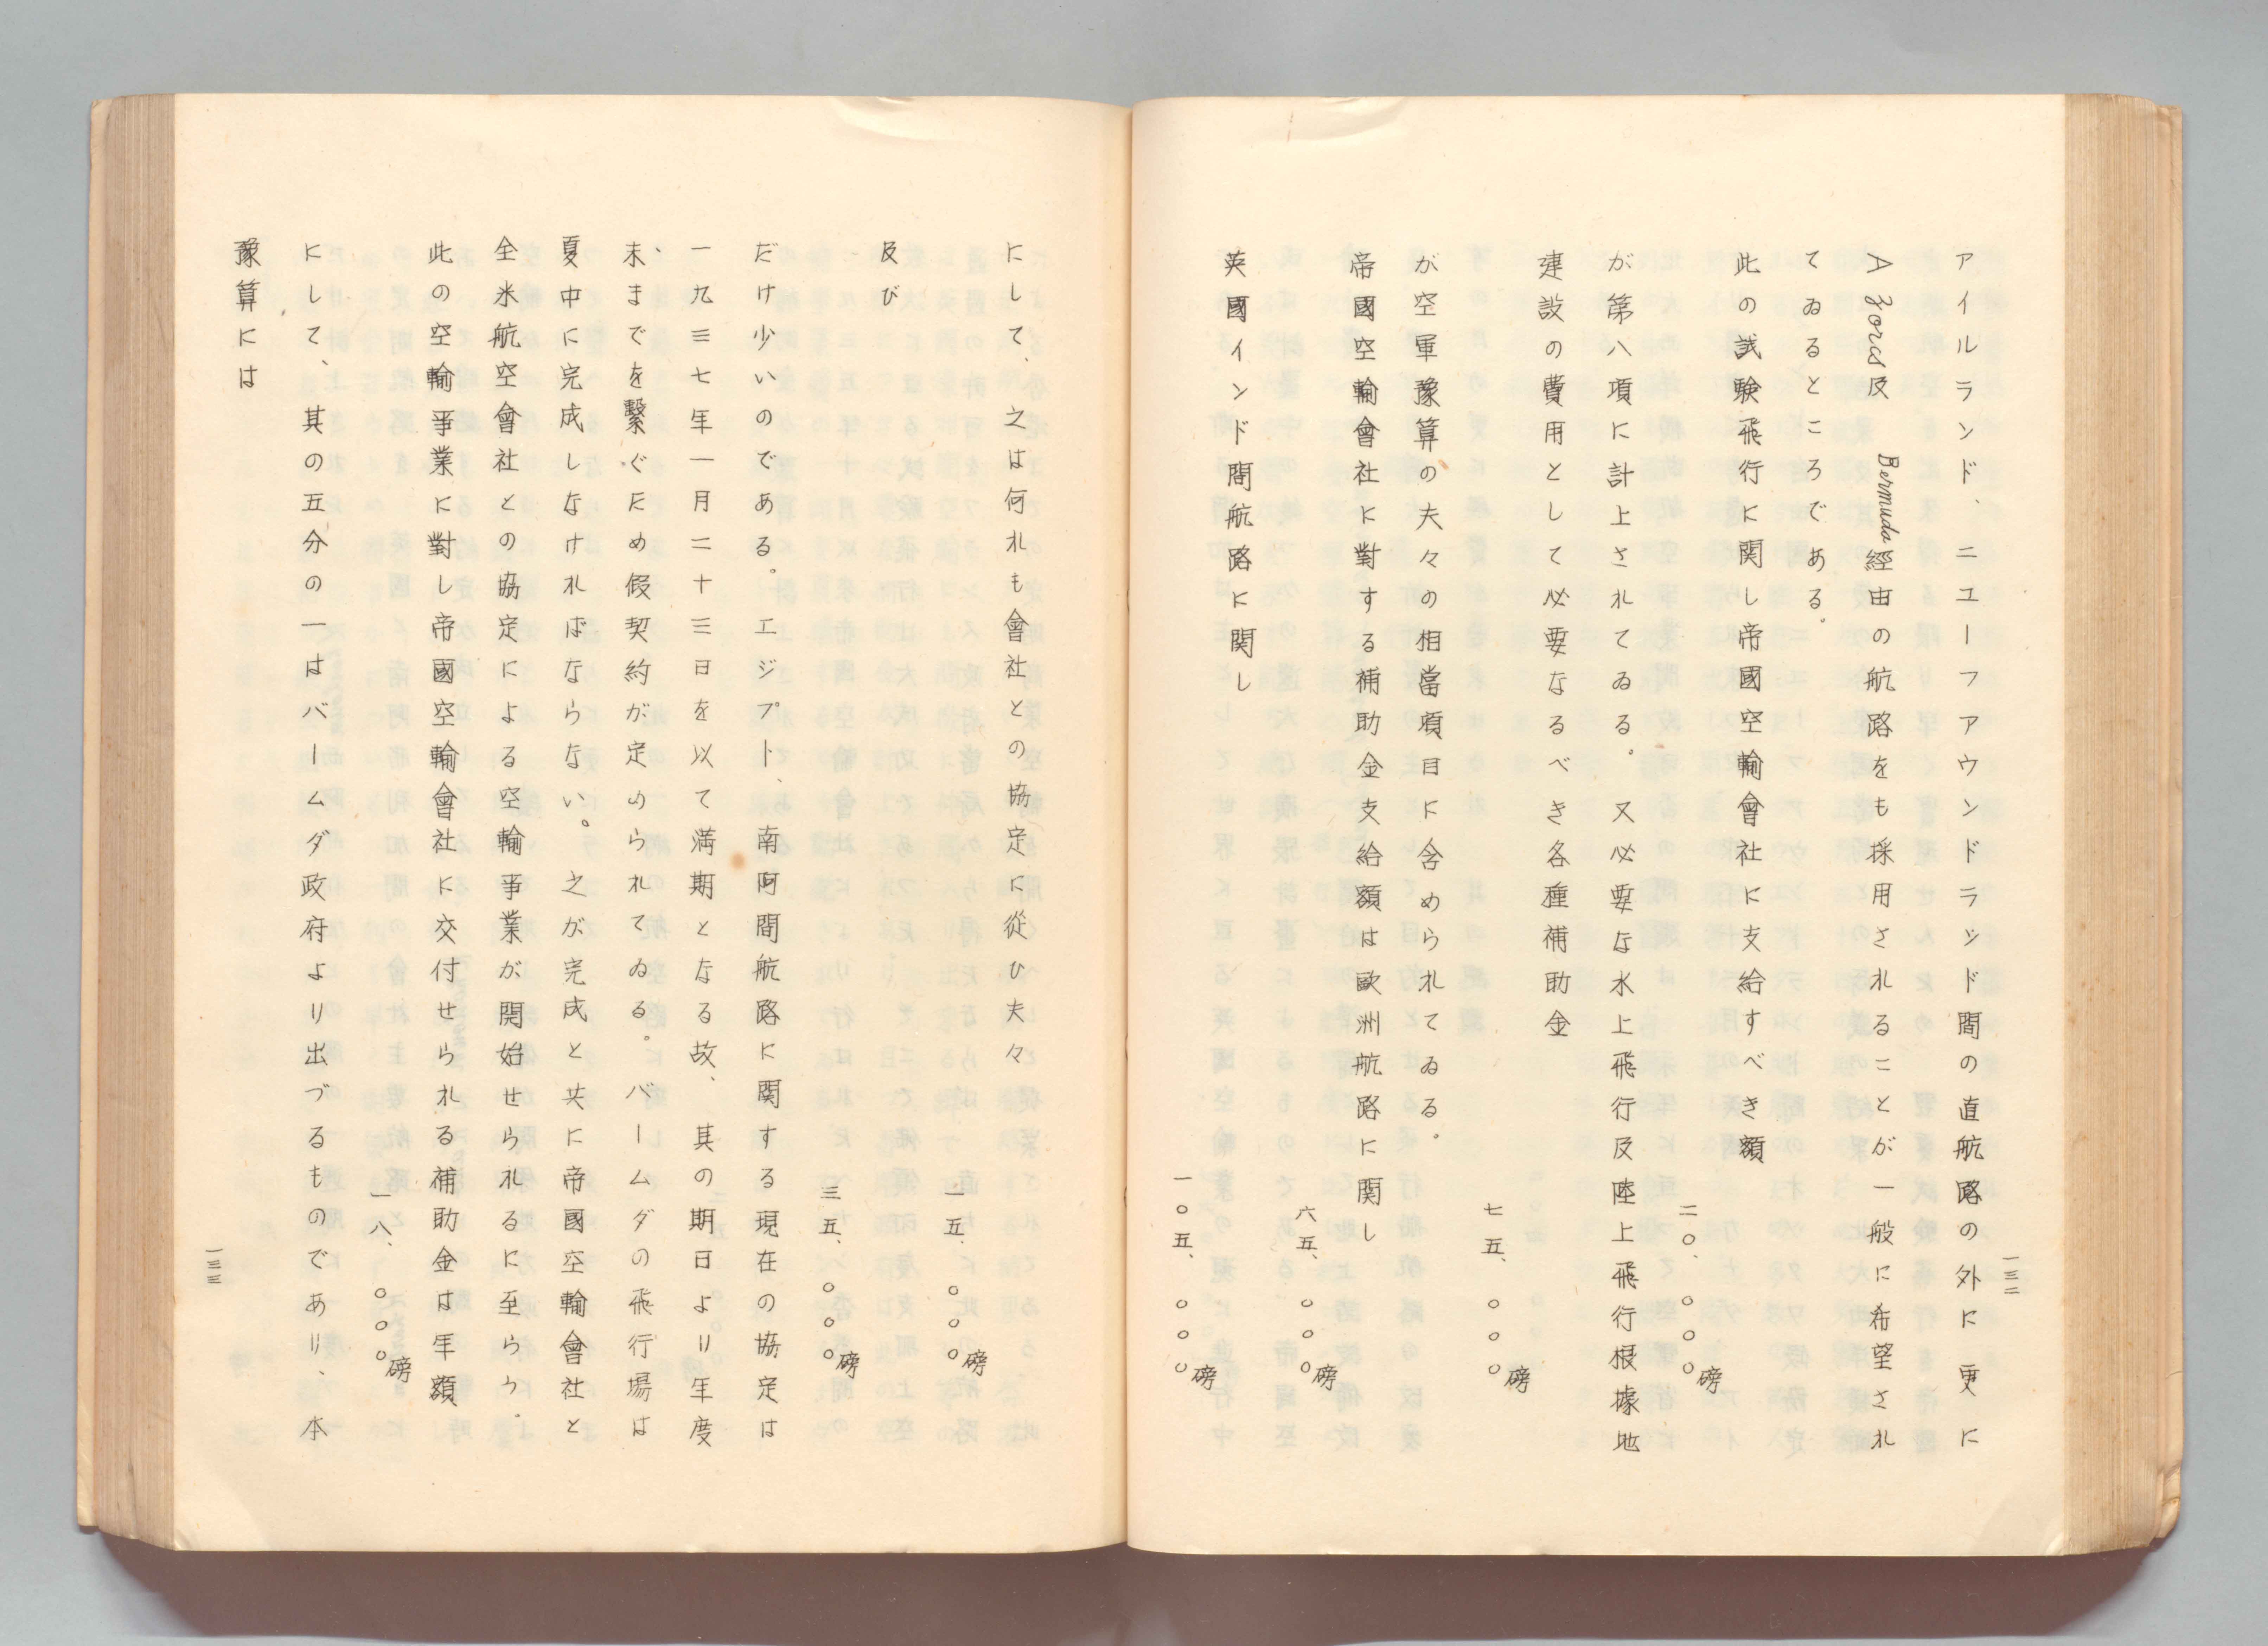 アイルランド、ニユーフアウンドラツド間の直航路の外に更に
Azores及 Bermuda經由の航路をも採用されることが一般に希望され
てゐるところである。
此の試験飛行に関し帝國空輸會社に支給すべき額
二〇、〇〇〇磅
が第八項に計上されてゐる。又必要な水上飛行及陸上飛行根據地
建設の費用として必要なるべき各種補助金
七五、〇〇〇磅
が空軍豫算の夫々の相當項目に含められてゐる。
帝國空輸會社に對する補助金支給額は歐洲航路に関し
六五、〇〇〇磅
英國インド間航路に関し
一〇五、〇〇〇磅
一三二
にして、之は何れも會社との協定に從ひ夫々
一五、〇〇〇磅
及び
三五、〇〇〇磅
だけ少いのである。エジプト、南阿間航路に関する現在の協定は
一九三七年一月二十三日を以て満期となる故、其の期日より年度
末までを繋ぐため假契約が定められてゐる。バームダの飛行場は
夏中に完成しなければならない。之が完成と共に帝國空輸會社と
全米航空會社との協定による空輸事業が開始せられるに至らう。
此の空輸事業に對し帝國空輸會社に交付せられる補助金は年額
一八、〇〇〇磅
にして、其の五分の一はバームダ政府より出づるものであり、本
豫算には
一三三